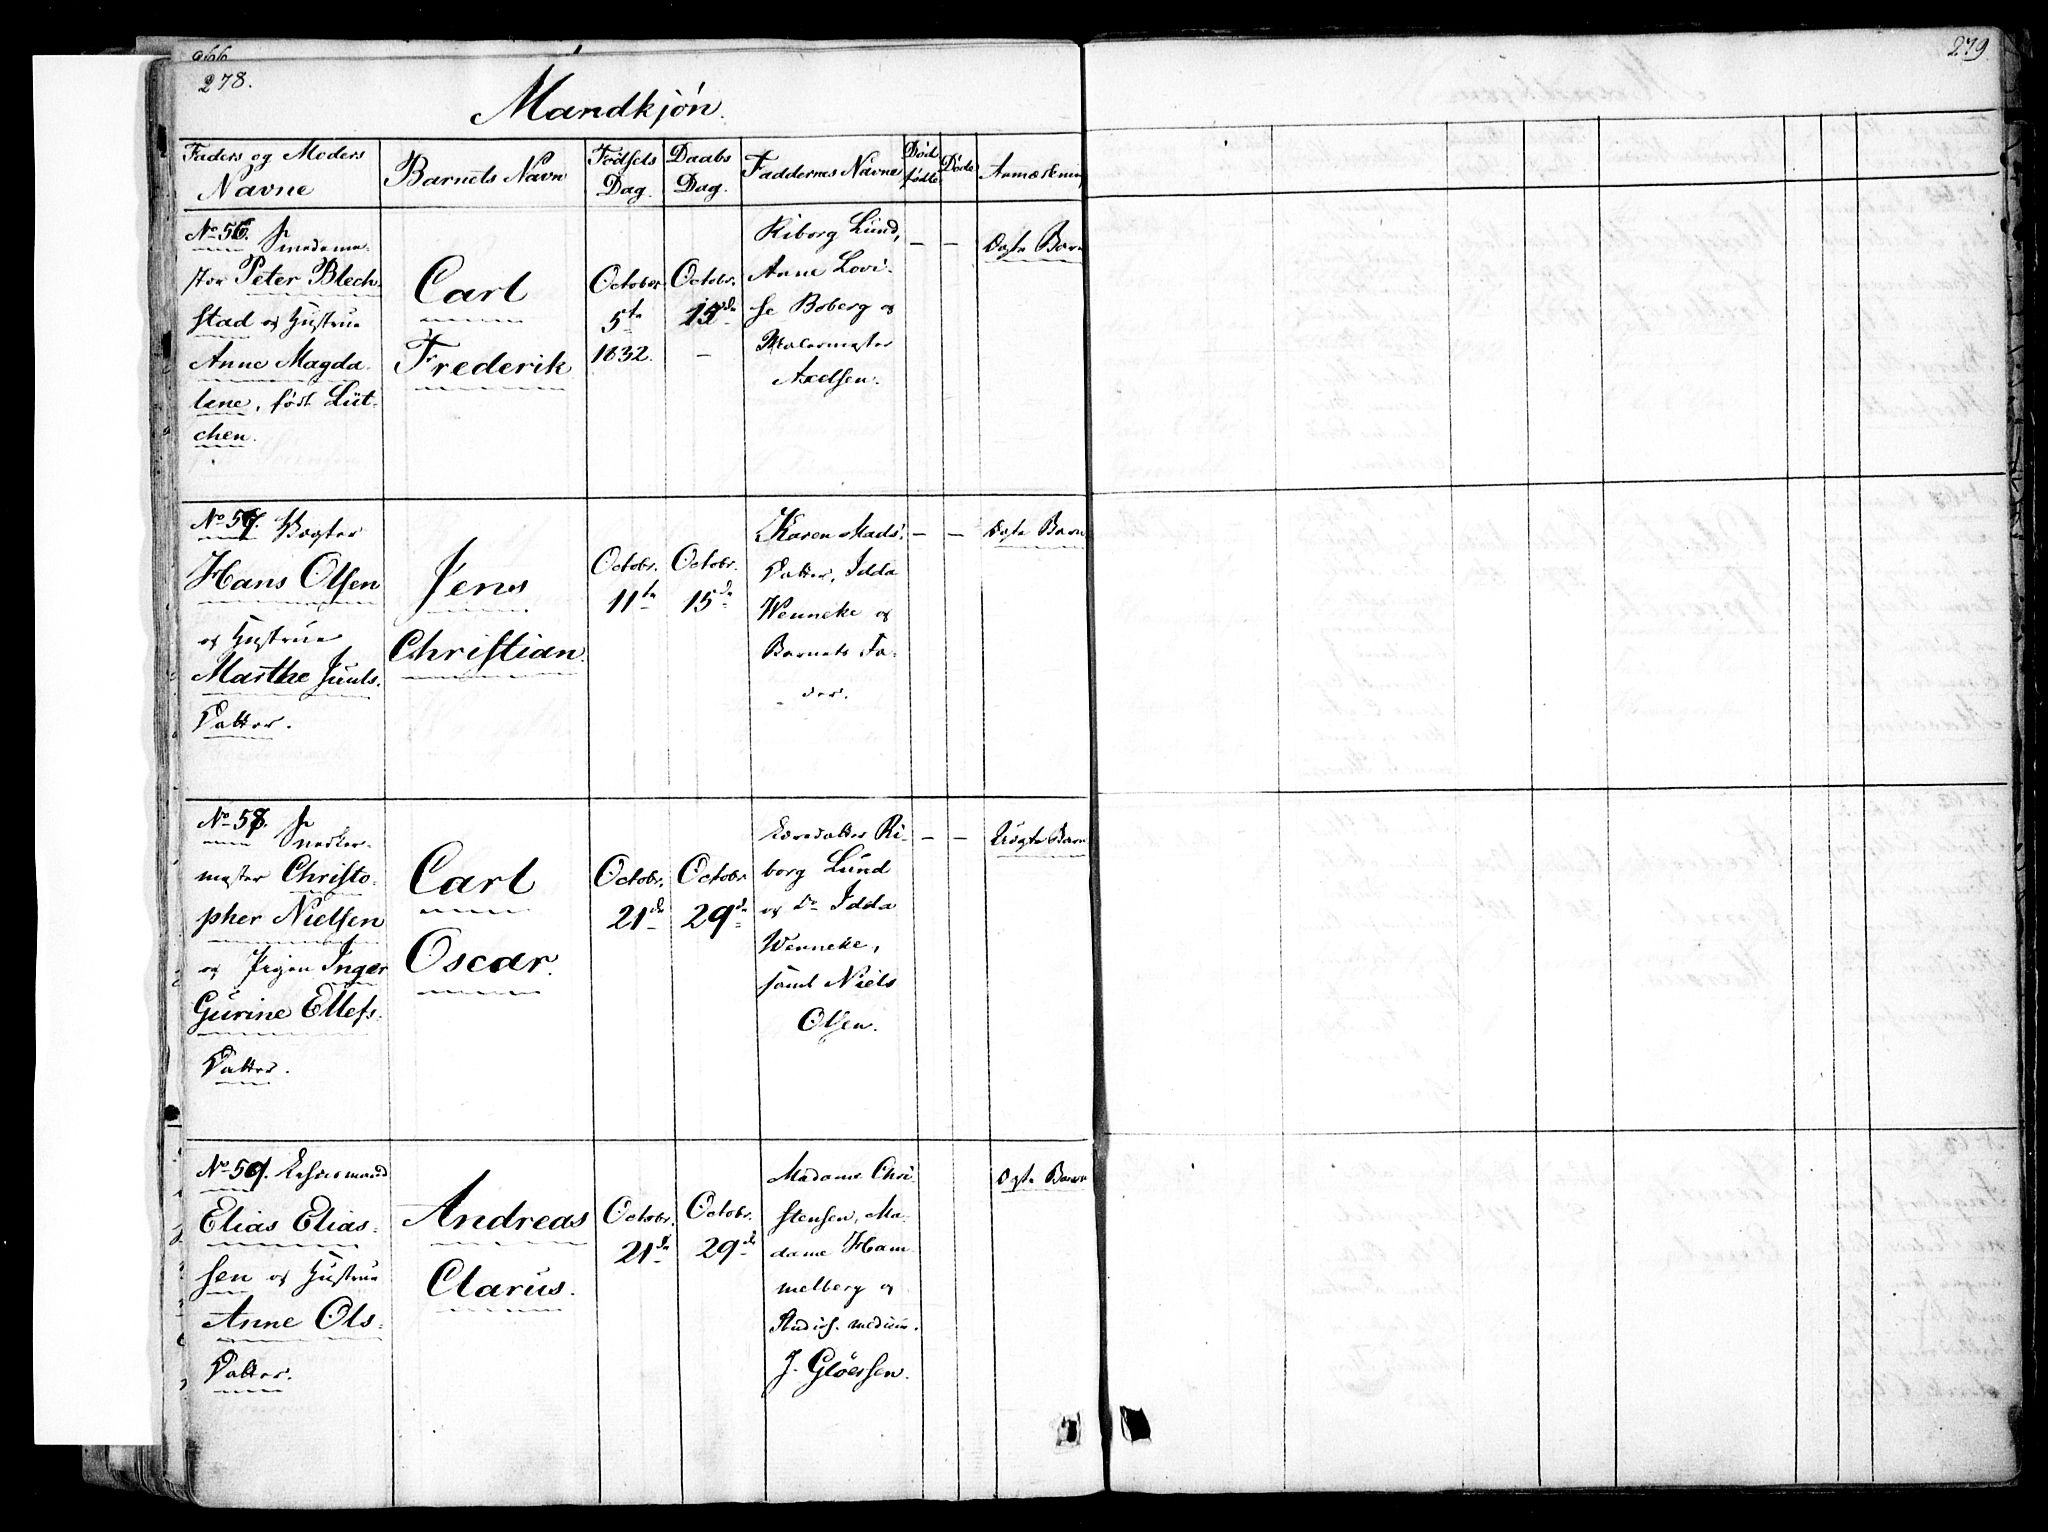 266
278.
279.
Mandkjøn.
Faders og Moders
Navne
Barnets Navn
Fødsels
Dag.
Daabs
Dag.
Faddernes Navne
Død
fødte
Døde
Anmærkning
No 56. Smedeme-
ster Peter Blech-
stad og Hustrue
Anne Magda-
lene, født Lüt-
chen.
Carl
Frederik
October
5te
1832.
Octobr.
15de
—
Riborg Lund,
Anne Lovi-
se Boberg og
Malermester
Axelsen.
—
—
Ægte Barn
No 57. Vægter
Hans Olsen
og Hustrue
Marthe Juuls-
Datter.
Jens
Christian.
Octobr.
11te
Octobr.
15de
Karen Mads-
Datter, Idda
Wenneke og
Barnets Fa-
der.
—
—
Ægte Barn
No 58. Snedker-
mester Christo-
pher Nielsen
og Pigen Inger
Gurine Ellefs-
Datter.
Carl
Oscar.
Octobr.
21de
Octobr.
29de
Ri-
borg Lund
og Do Idda
Wenneke,
samt Niels
Olsen.
—
—
Uægte Barn
No 59.
Elias Elias-
sen og Hustrue
Anne Ols-
Datter.
Andreas
Clarus.
Octobr.
21de
Octobr.
29de
Madame Chri-
stensen, Ma-
dame Ham-
melberg og
Studios. medicin.
J. Gløersen.
Ægte Barn